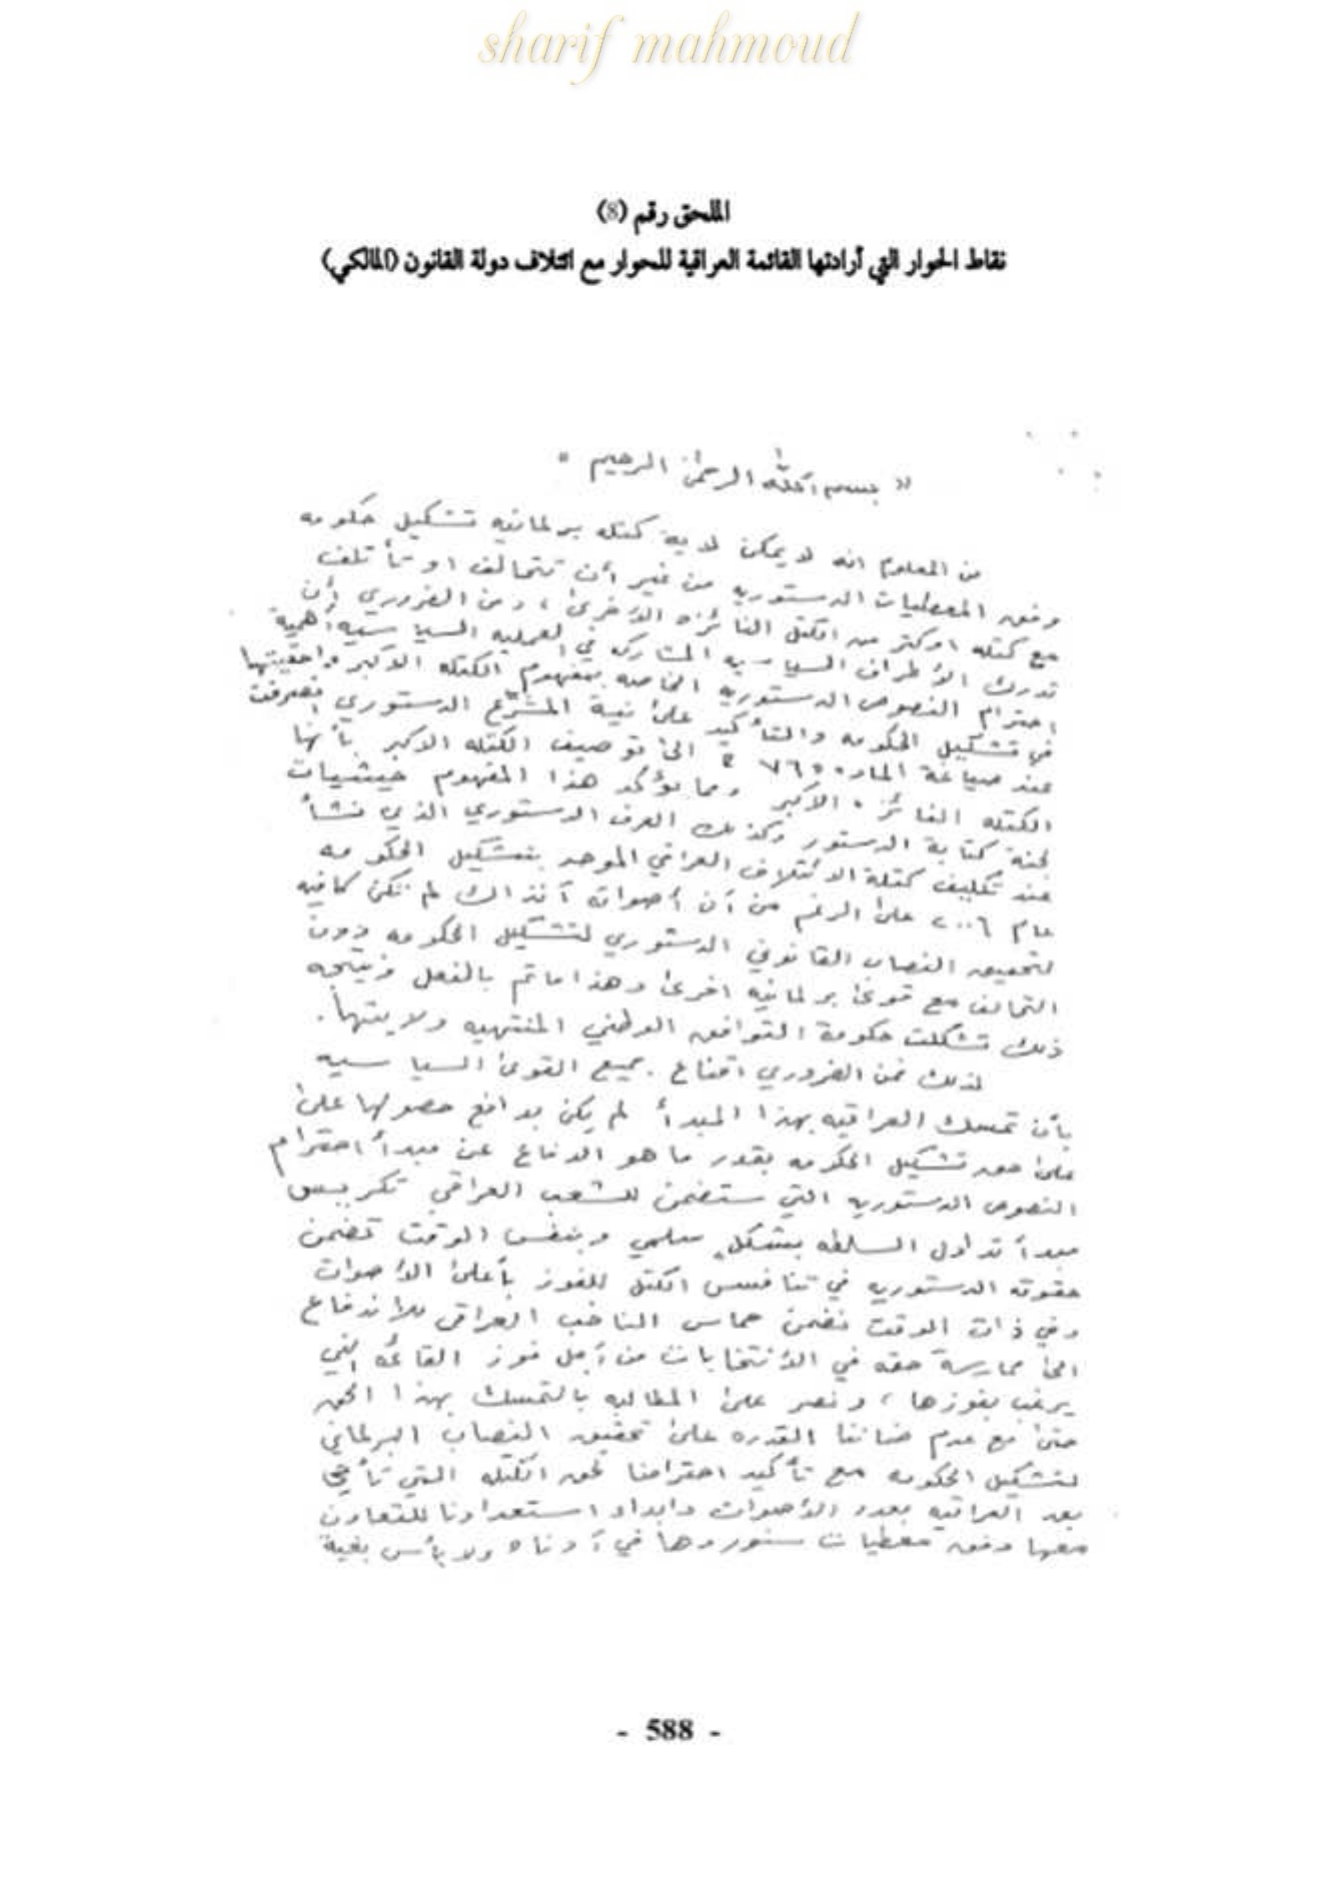 sharif mahmoud
الملحق رقم (8)
نقاط الحوار التي أرادتها القائمة العراقية للحوار مع ائتلاف دولة القانون (المالكي)
« بسم الله الرحمن الرحيم »
من المعلوم انه لا يمكن لاية كتله برلمانيه تشكيل حكومه
وفق المعطيات الدستوريه من غير أن تتحالف او تأتلف
مع كتله او كثر من الكتل الفائزه الأخرى ، ومن الضروري أن
تدرك الأطراف السياسيه المشاركه في العمليه السياسيه أهمية
احترام النصوص الدستوريه الخاصه بمفهوم الكتله الاكبر واحقيتها
في تشكيل الحكومه والتأكيد على نية المشرّع الدستوري انصرفت
عند صياغة الماده ٧٦ الى توصيف الكتله الاكبر بأنها
الكتله الفائزه الاكبر ومما يؤكد هذا المفهوم حيثيات
لجنة كتابة الدستور وكذلك العرف الدستوري الذي نشأ
عند تكليف كتلة الائتلاف العراقي الموحد بتشكيل الحكومه
عام ٢٠٠٦ على الرغم من أن أصواته آنذاك لم تكن كافيه
لتحقيق النصاب القانوني الدستوري لتشكيل الحكومه دون
التحالف مع قوى برلمانيه اخرى وهذا ماتم بالفعل ونتيجه
ذلك تشكلت حكومة التوافق الوطني المنتهيه ولايتها.
لذلك فمن الضروري اقناع جميع القوى السياسيه
بأن تمسك العراقيه بهذا المبدأ لم يكن بدافع حصولها على
على حق تشكيل الحكومه بقدر ما هو الدفاع عن مبدأ احترام
النصوص الدستوريه التي ستضمن للشعب العراقي تكريس
مبدأ تداول السلطه بشكل سلمي وبنفس الوقت تضمن
حقوقه الدستوريه في تنافس الكتل للفوز بأعلى الأصوات
وفي ذات الوقت نضمن حماس الناخب العراقي للاندفاع
الى ممارسة حقه في الأنتخابات من أجل فوز القائمه التي
يرغب بفوزها ، ونصر على المطالبه بالتمسك بهذا الحق
حتى مع عدم ضماننا القدره على تحقيق النصاب البرلماني
لتشكيل الحكومه مع تأكيد احترامنا لحق الكتله التي تأتي
بعد العراقيه بعدد الأصوات وابداء استعدادنا للتعاون
معها وفق معطيات سنوردها في أدناه ولا بأس بغية
- 588 -